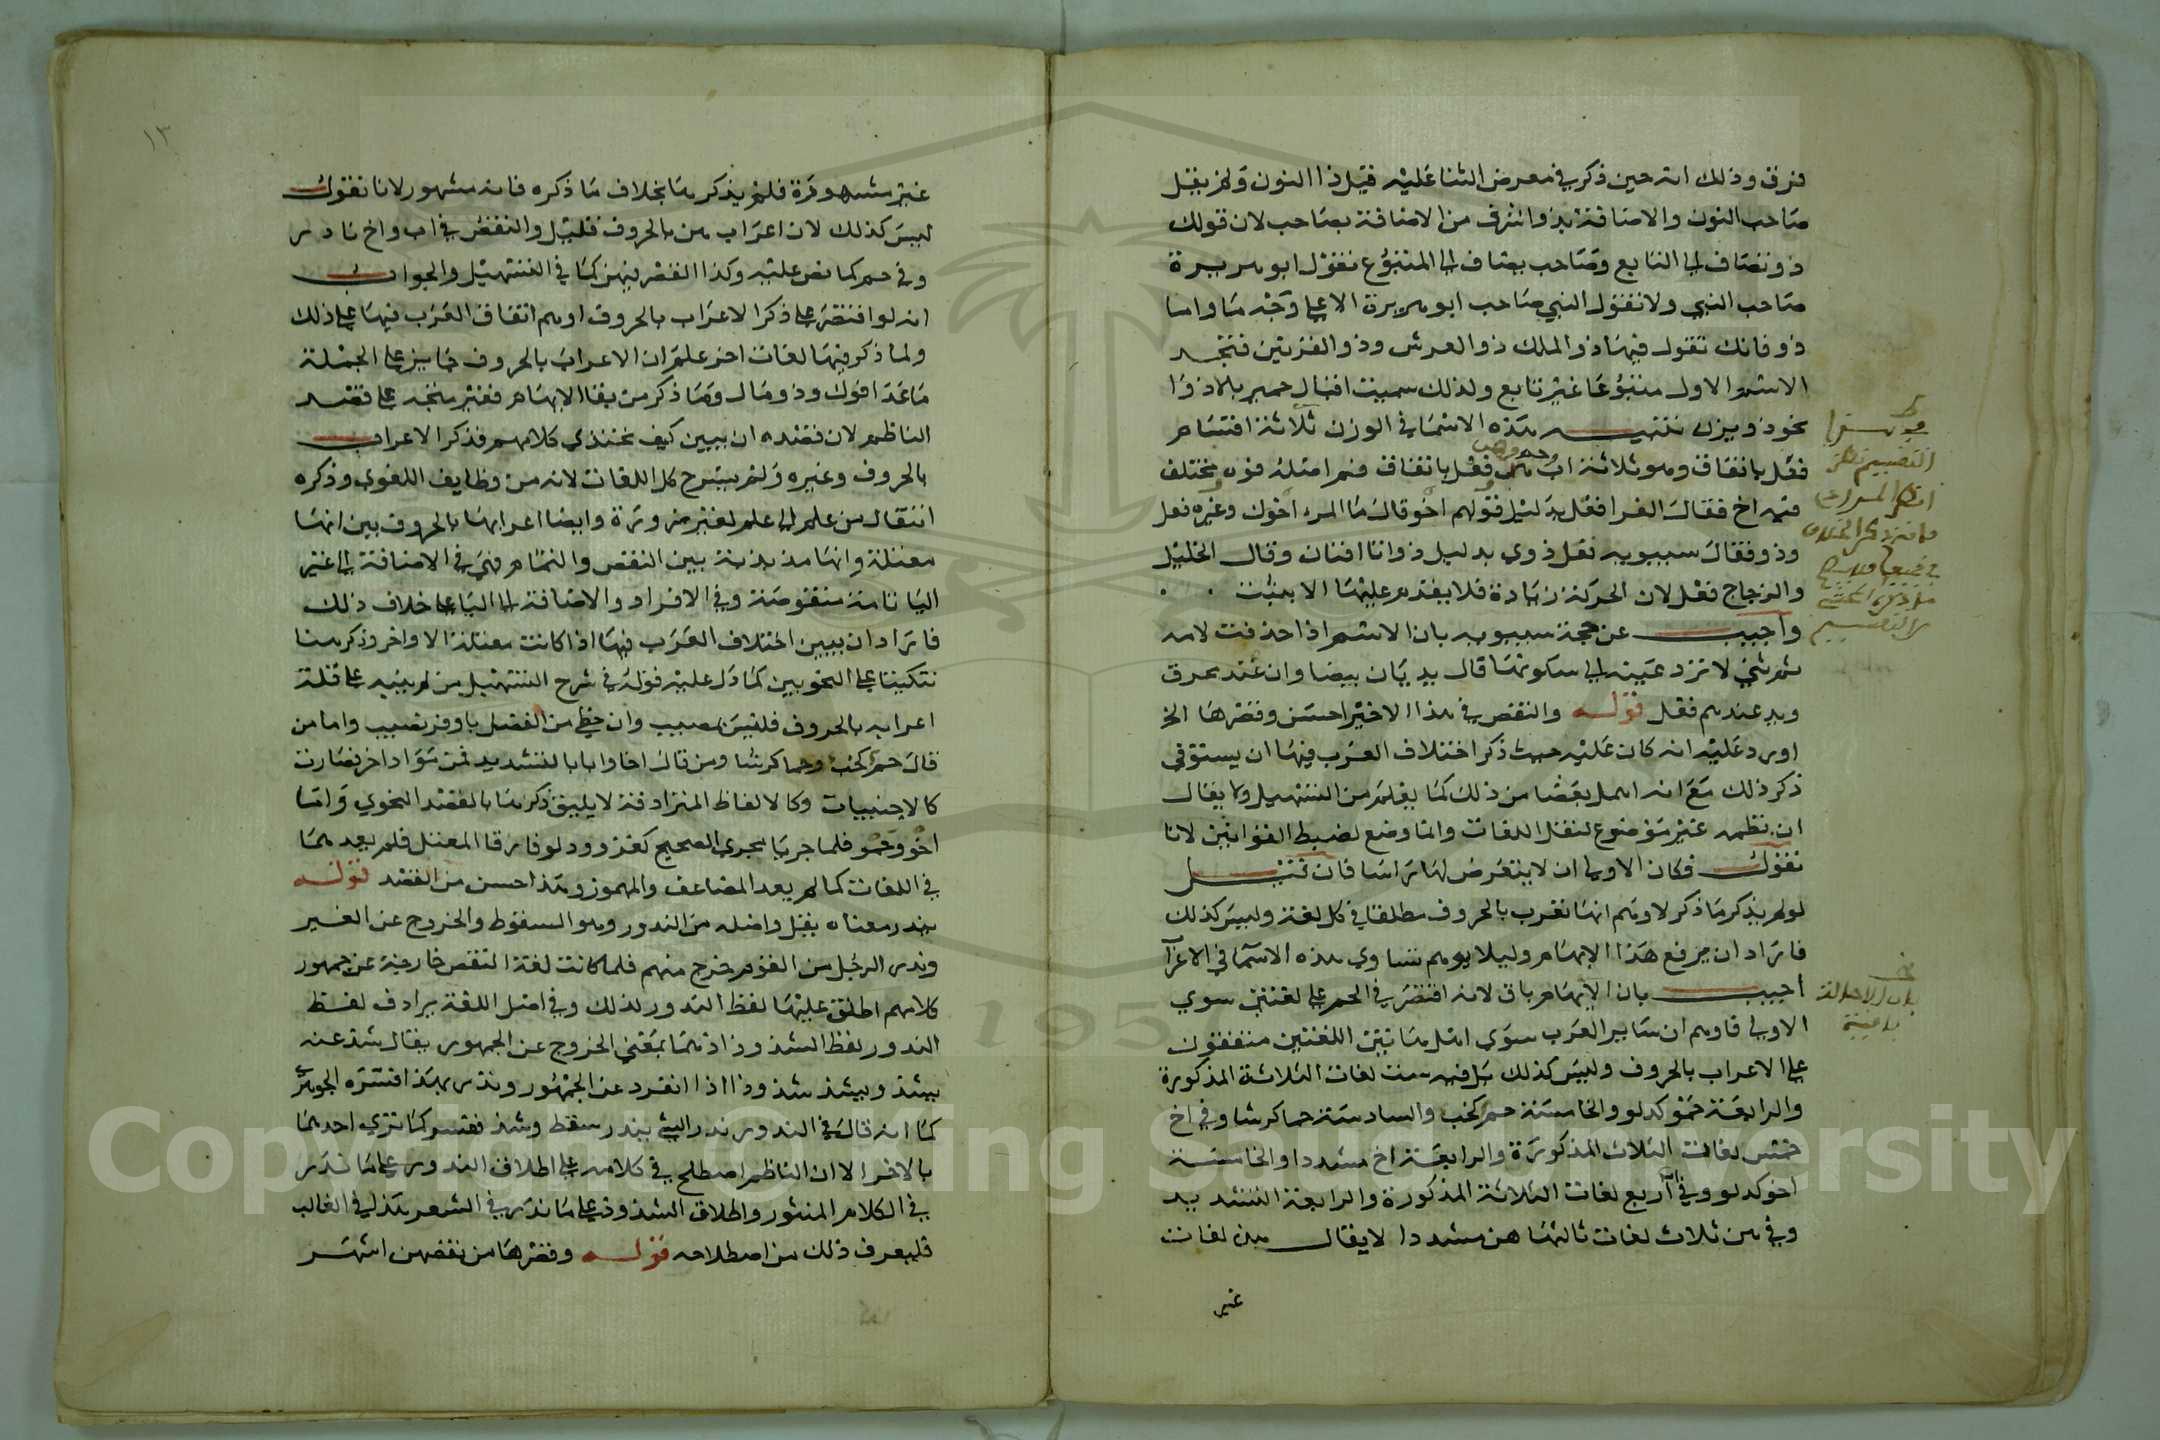 فرق وذلك انه حين ذكر في معرض الثنا عليه قيل ذا النون ولم يقل
صاحب النون والاضافة بذو اشرف من الاضافة بصاحب لان قولك
ذو تضاف الى التابع وصاحب يضاف الى المتبوع نقول ابو هريرة
صاحب النبي ولا نقول النبي صاحب ابو هريرة الا على وجه ما واما
ذو فانك تقول فيها ذو الملك ذو العرش وذو القرنين فتجد
الاسم الاول متبوعا غير تابع ولذلك سميت اقيال حمير بالاذوا
نحو ذو يزن تنبيه هذه الاسما في الوزن ثلاثة اقسام
فعل باتفاق وهو ثلاثة اب حم وهن وفعل باتفاق فم اصله فوه مختلف
فيه اخ فقال الفرا فعل بدليل قولهم اخو قال ما المرء اخوك وغيره فعل
وذو فقال سيبويه فعل ذوي بدليل ذواتا افنان وقال الخليل
والزجاج فعل لان الحركة زيادة فلا يقدم عليها الا بثبت
واجيب عن حجة سيبويه بان الاسم اذا حذفت لامه
ثم ثني لا ترد عينه الى سكونها قال يديان بيضا وان عند محرق
ويد عندهم فعل قوله والنقص في هذا الاخير احسن وقصرها الخ
اورد عليه انه كان عليه حيث ذكر اختلاف العرب فيها ان يستوفي
ذكر ذلك مع انه اهمل بعضا من ذلك كما يعلم من التسهيل ولا يقال
ان نظمه غير موضوع لنقل اللغات وانما وضع لضبط القوانين لانا
نقول فكان الاولى ان لا يتعرض لها راسا فان قيل
لو لم يذكر ما ذكر لاوهم انها تعرب بالحروف مطلقا في كل لغة وليس كذلك
فاراد ان يرفع هذا الايهام وليلا يوهم تساوي هذه الاسما في الاعرا
اجيب بان الايهام باق لانه اقتصر في الحم على لغتين سوي
الاولي فاوهم ان ساير العرب سوي اهل هاتين اللغتين متفقون
على الاعراب بالحروف وليس كذلك بل فيه ست لغات الثلاثة المذكورة
والرابعة حمو كدلو والخامسة حم كخب والسادسة حما كرشا وفي اخ
خمس لغات الثلاث المذكورة والرابعة اخ مشددا والخامسة
اخو كدلو وفي اب اربع لغات الثلاثة المذكورة والرابعة التشديد
وفي هن ثلاث لغات ثالثها هن مشددا لا يقال هذه لغات
غير
التقسيم
بان الاحالة
١٣
غير مشهورة فلم يذكرها بخلاف ما ذكره فانه مشهور لانا نقول
ليس كذلك لان اعراب هن بالحروف قليل والنقص في اب واخ نادر
وفي حم كما نص عليه وكذا القصر فيهن كما في التسهيل والجواب
انه لو اقتصر على ذكر الاعراب بالحروف اوهم اتفاق العرب فيها على ذلك
ولما ذكر فيها لغات اخر علم ان الاعراب بالحروف جايز على الجملة
ما عدا فوك وذو مال وما ذكر من بقا الايهام فغير متجه على قصد
الناظم لان قصده ان يبين كيف نحتذي كلامهم فذكر الاعراب
بالحروف وغيره ولم يشرح كل اللغات لانه من وظايف اللغوي وذكره
انتقال من علم الى علم لغير ضرورة وايضا اعرابها بالحروف بين انها
معتلة وانها مذبذبة بين النقص والتمام فهي في الاضافة الى غير
اليا تامة منقوصة وفي الافراد والاضافة الى اليا على خلاف ذلك
فاراد ان يبين اختلاف العرب فيها اذا كانت معتلة الاواخر وذكر هنا
تنكيتا على النحويين كما دل عليه قوله في شرح التسهيل من لم ينبه على قلة
اعرابه بالحروف فليس بمصيب وان حظي من الفضل باوفر نصيب واما من
قال حم كخب وحما كرشا ومن قال اخا وابا بالتشديد فمن مواد اخر فصارت
كالاجنبيات وكالالفاظ المترادفة لا يليق ذكرها بالقصد النحوي واما
اخو وحمو فلما جريا مجري الصحيح كغزو ودلو فارقا المعتل فلم يعدهما
في اللغات كما لم يعد المضاعف والمهموز وهذا احسن من القصد قوله
يندر معناه يقل واصله من الندور وهو السقوط والخروج عن الغير
وندر الرجل من القوم خرج منهم فلما كانت لغة النقص خارجة عن جمهور
كلامهم اطلق عليها لفظ الندور لذلك وفي اصل اللغة يرادف لفظ
الندور لفظ الشذوذ اذ هما بمعني الخروج عن الجمهور يقال شذ عنه
يشذ ويشذ شذوذا اذا انفرد عن الجمهور وندر بهذا فسره الجوهري
كما انه قال في الندور ندر الشي يندر سقط وشذ ففسر كما تري احدهما
بالاخر الا ان الناظم اصطلح في كلامه على اطلاق الندور على ما ندر
في الكلام المنثور واطلاق الشذوذ على ما ندر في الشعر هذا في الغالب
فليعرف ذلك من اصطلاحه قوله وقصرها من نقصهن اشهر
Copyright © King Saud University
195